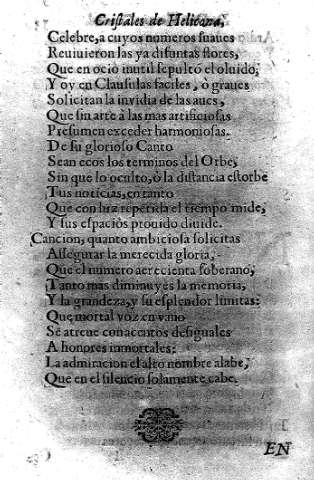 Cristales de Helicona,
Celebre, a cuyos numeros suaues
Reuiuieron las ya difuntas flores,
Que en ocio inutil sepultò el oluido;
Y oy en Clausulas faciles, ò graues
Solicitan la invidia de las aues,
Que sin arte à las mas artificiosas
Presumen exceder harmoniosas.
De su glorioso Canto
Sean ecos los terminos del Orbe,
Sin que lo oculto, ò la distancia estorbe
Tus noticias, en tanto
Que con luz repetida el tiempo mide,
Y sus espacios prouido diuide.
Cancion, quanto ambiciosa solicitas
Assegurar la merecida gloria,
Que el numero acrecienta soberano,
Tanto mas diminuyes la memoria,
Y la grandeza, y su esplendor limitas:
Que mortal voz en vano
Se atreue con acentos desiguales
A honores inmortales:
La admiracion el alto nombre alabe,
Que en el silencio solamente cabe.
EN